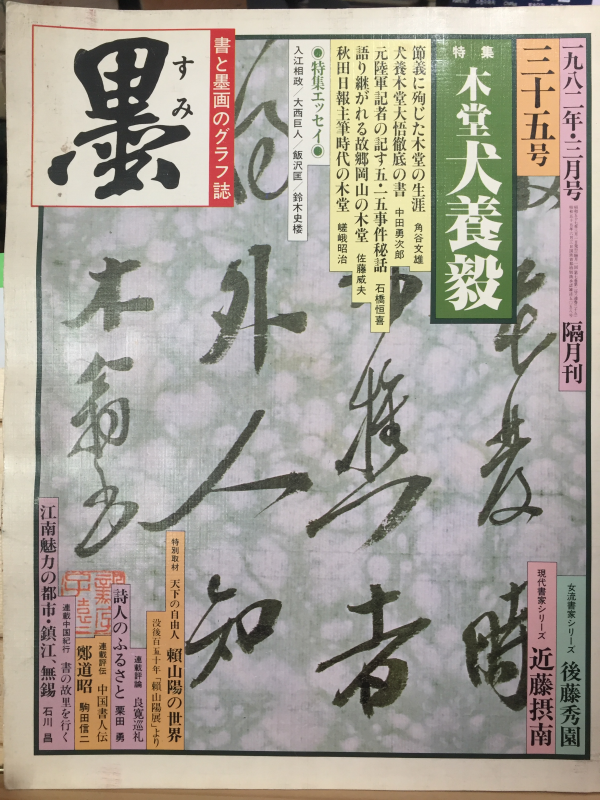 書と墨画のグラフ誌
墨
すみ
一九八二年・三月号
隔月刊
三十五号
特集
木堂犬養毅
節義に殉じた木堂の生涯 角谷文雄
犬養木堂大悟徹底の書 中田勇次郎
元陸軍記者の記す五・一五事件秘話 石橋恒喜
語り継がれる故郷岡山の木堂 佐藤威夫
秋田日報主筆時代の木堂 嵯峨昭治
●特集エッセイ●
入江相政/大西巨人/飯沢匡/鈴木史楼
外人知
木翁
女流書家シリーズ 後藤秀園
現代書家シリーズ 近藤摂南
特別取材 天下の自由人 頼山陽の世界
没後百五十年「頼山陽展」より
連載評論 良寛巡礼
詩人のふるさと 栗田勇
連載評伝 中国書人伝
鄭道昭 駒田信二
連載中国紀行 書の故里を行く 石川昌
江南魅力の都市・鎮江、無錫